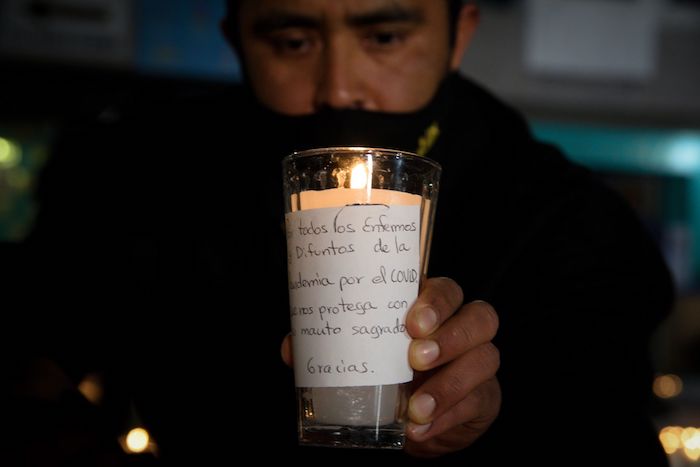 todos los Enfermos
y Difuntos de la
por el COVID.
nos protega con
mauto sagrado
Gracias.